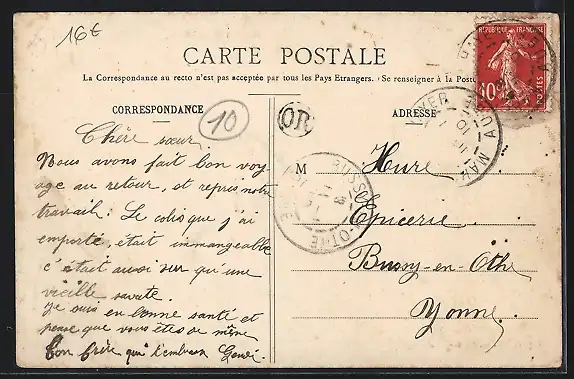 16€
CARTE POSTALE
La Correspondance au recto n'est pas acceptée par tous les Pays Etrangers. (Se renseigner à la Poste
REPUBLIQUE FRANÇAISE
10c
POSTES
CORRESPONDANCE
10
OR
ADRESSE
Chère sœur.
Nous avons fait bon voy-
age au retour, et repris notre
travail: Le colis que j'ai
emporté, était immangeable
c'était aussi dur qu'une
vieille savate.
Je suis en bonne santé et
pense que vous êtes de même
Ton frère qui t'embrasse
M Hure
Epicerie
Bussy-en-Othe
Yonne.
BUSSY-EN-OTHE
AUBE